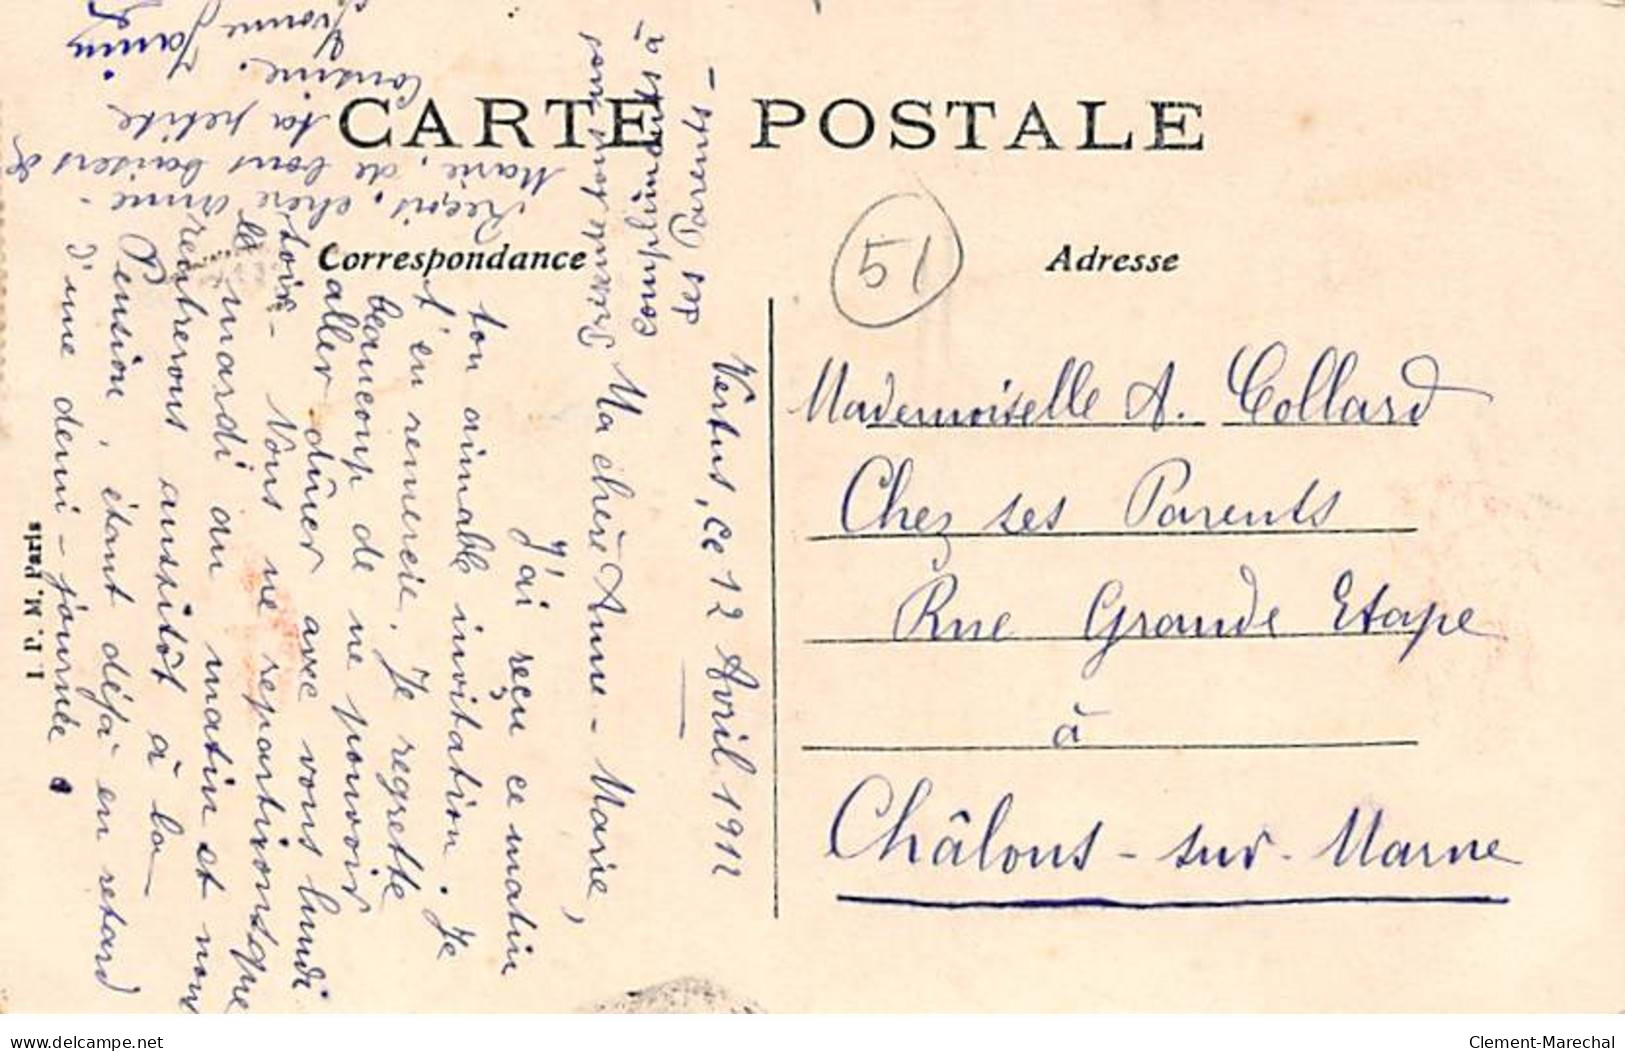 CARTE POSTALE
Correspondance
Adresse
51
Vertus, ce 12 Avril 1912
Ma chère Anne-Marie,
J'ai reçu ce matin
ton aimable invitation. Je
t'en remercie. Je regrette
beaucoup de ne pouvoir
aller dîner avec vous lundi
soir - Nous ne repartirons que
le mardi au matin et nous
rentrerons aussitôt à la
Pension, étant déjà en retard
d'une demi-journée.
Reçois, chère Anne-
Marie, de bons baisers de
ta petite
Cousine.
Yvonne Janin
Présente pour nous
compliments à
tes Parents -
Mademoiselle A. Collard
Chez ses Parents
Rue Grande Etape
à
Châlons-sur-Marne
I. P. M. Paris
www.delcampe.net
Clement-Marechal